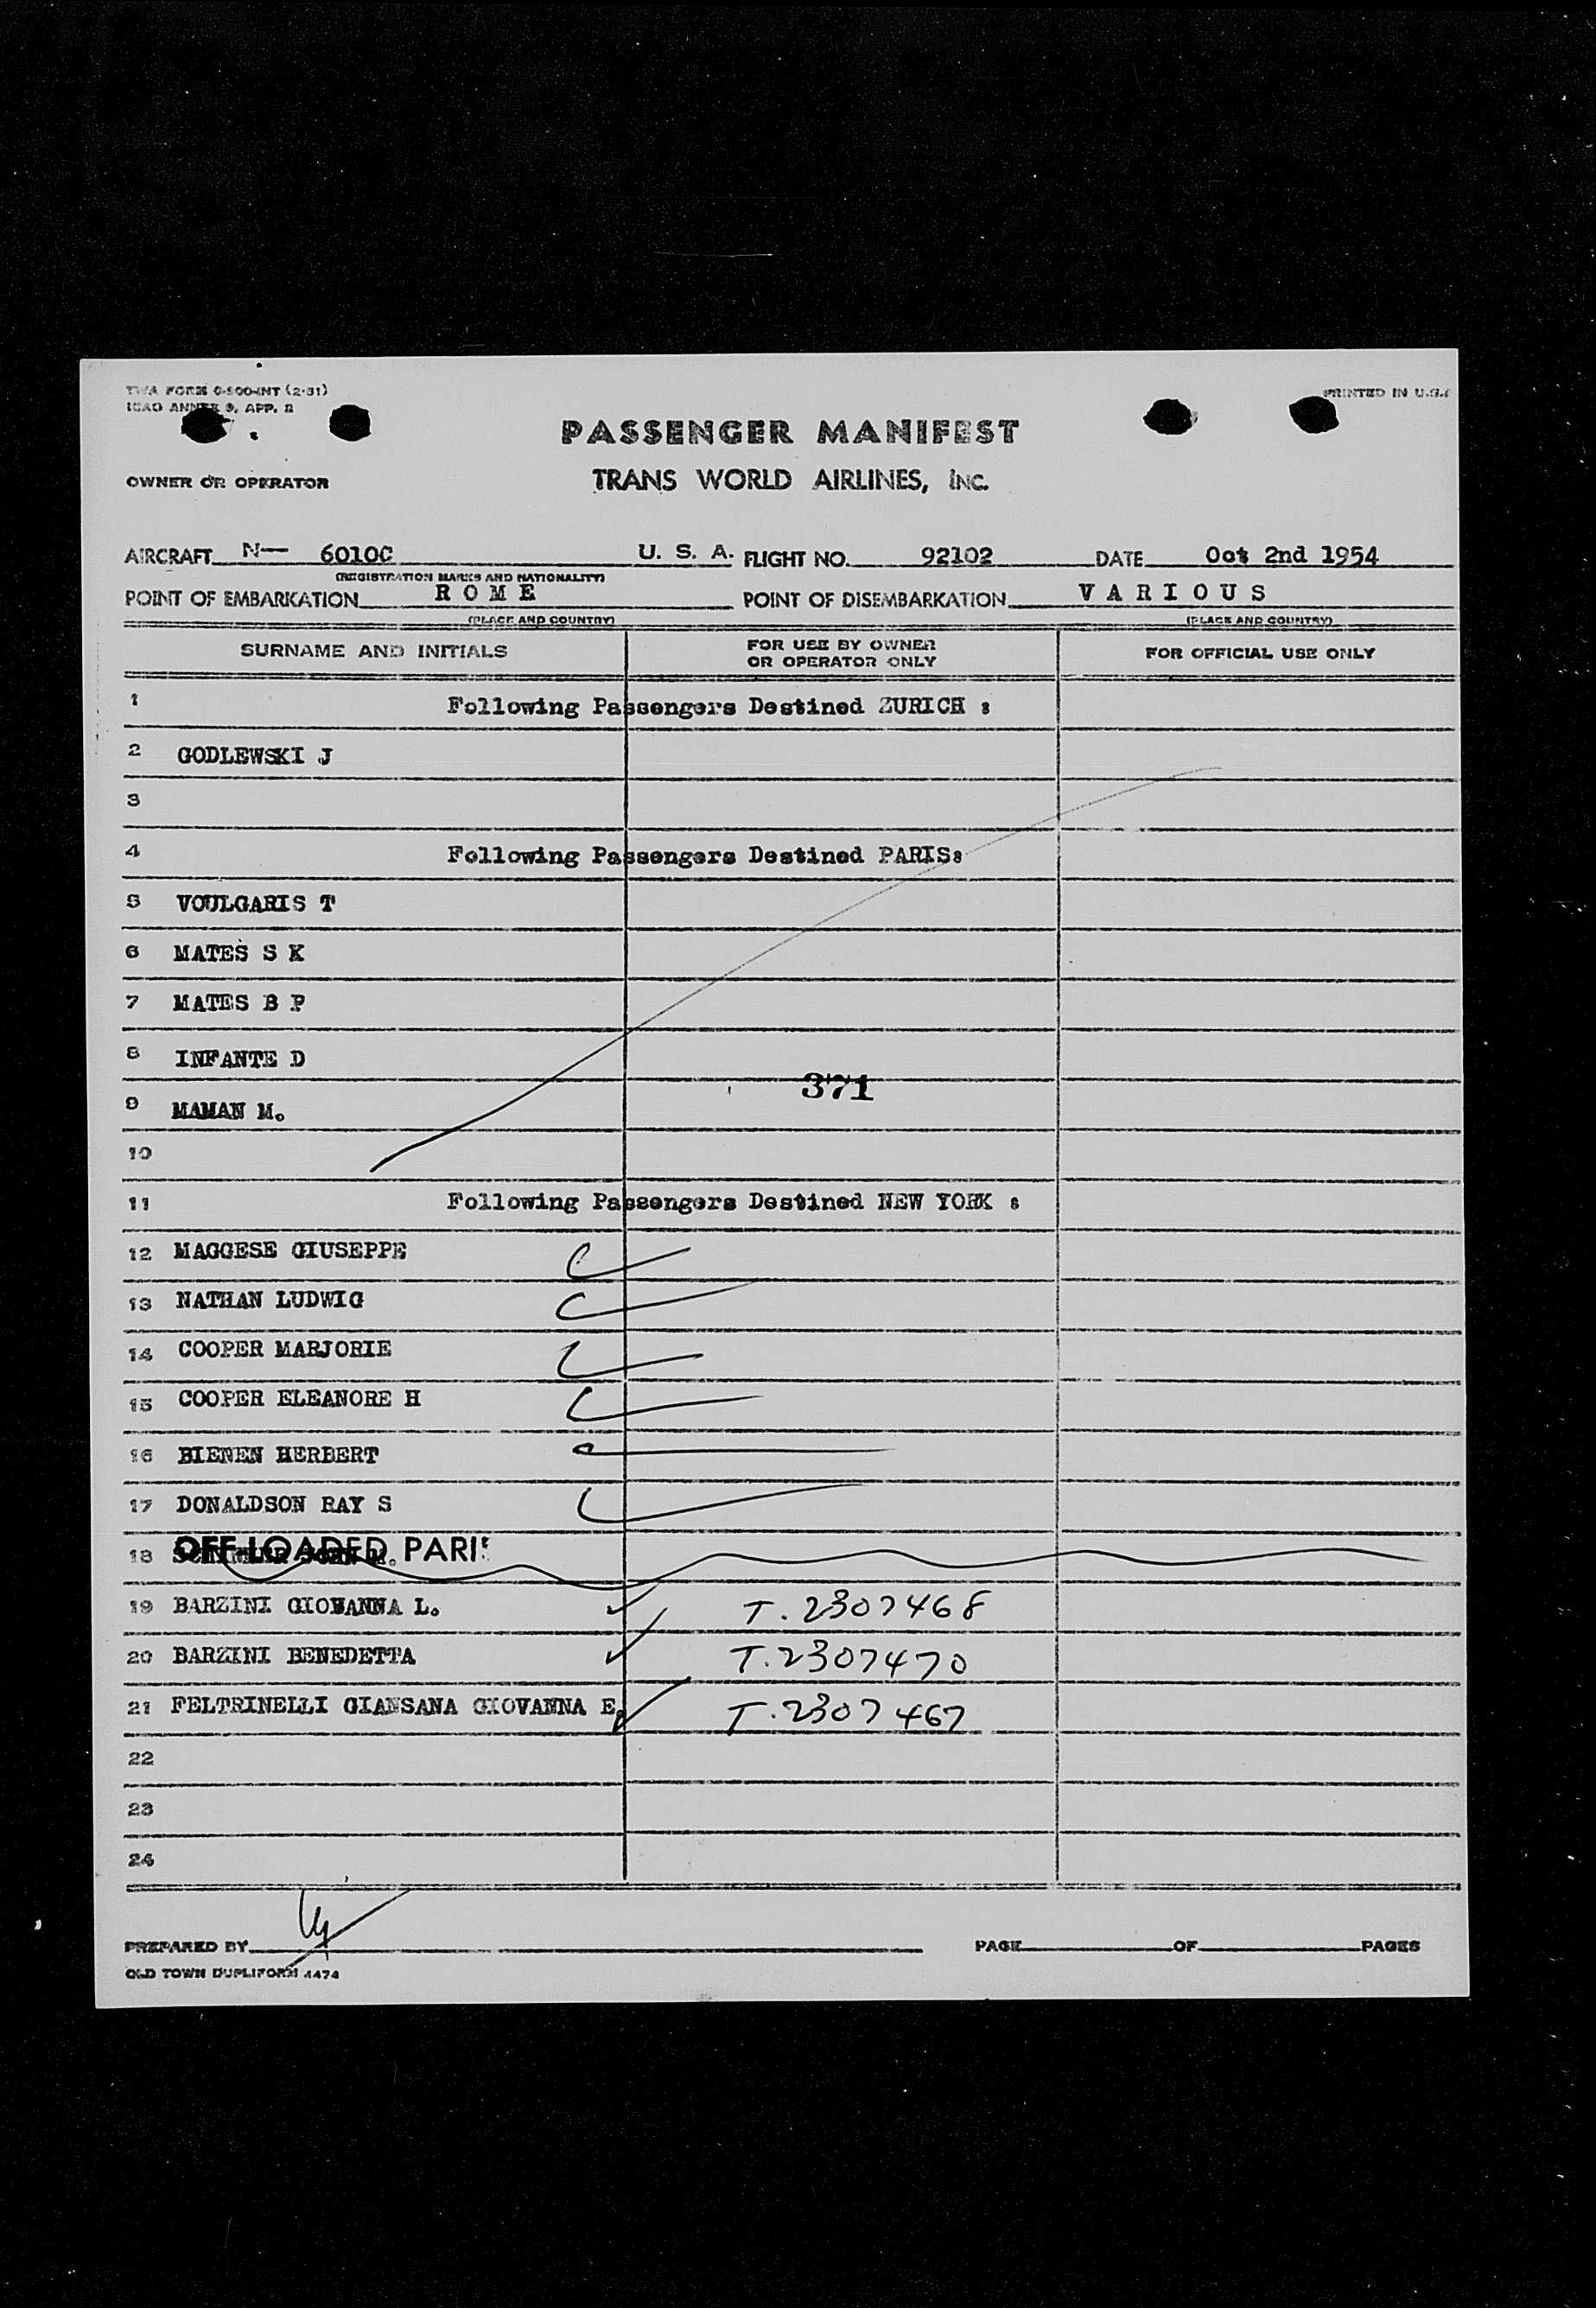 TWA FORM 0-500-INT (2-51)
ICAO ANNEX 9, APP. 2
PRINTED IN U.S.A
PASSENGER MANIFEST
OWNER OR OPERATOR
TRANS WORLD AIRLINES, INC.
AIRCRAFT N— 6010C U. S. A. FLIGHT NO. 92102 DATE Oct 2nd 1954
(REGISTRATION MARKS AND NATIONALITY)
POINT OF EMBARKATION R O M E POINT OF DISEMBARKATION V A R I O U S
(PLACE AND COUNTRY) (PLACE AND COUNTRY)
SURNAME AND INITIALS FOR USE BY OWNER OR OPERATOR ONLY FOR OFFICIAL USE ONLY
1 Following Passengers Destined ZURICH :
2 GODLEWSKI J
3
4 Following Passengers Destined PARIS:
5 VOULGARIS T
6 MATES S K
7 MATES B P
8 INFANTE D
371
9 MAMAN M.
10
11 Following Passengers Destined NEW YORK :
12 MAGGESE GIUSEPPE
13 NATHAN LUDWIG
14 COOPER MARJORIE
15 COOPER ELEANORE H
16 BIENEN HERBERT
17 DONALDSON RAY S
18 OFF-LOADED PARI
19 BARZINI GIOVANNA L. T. 2307468
20 BARZINI BENEDETTA T. 2307470
21 FELTRINELLI GIANSANA GIOVANNA E. T. 2307467
22
23
24
PREPARED BY PAGE OF PAGES
OLD TOWN DUPLIFORM 4474